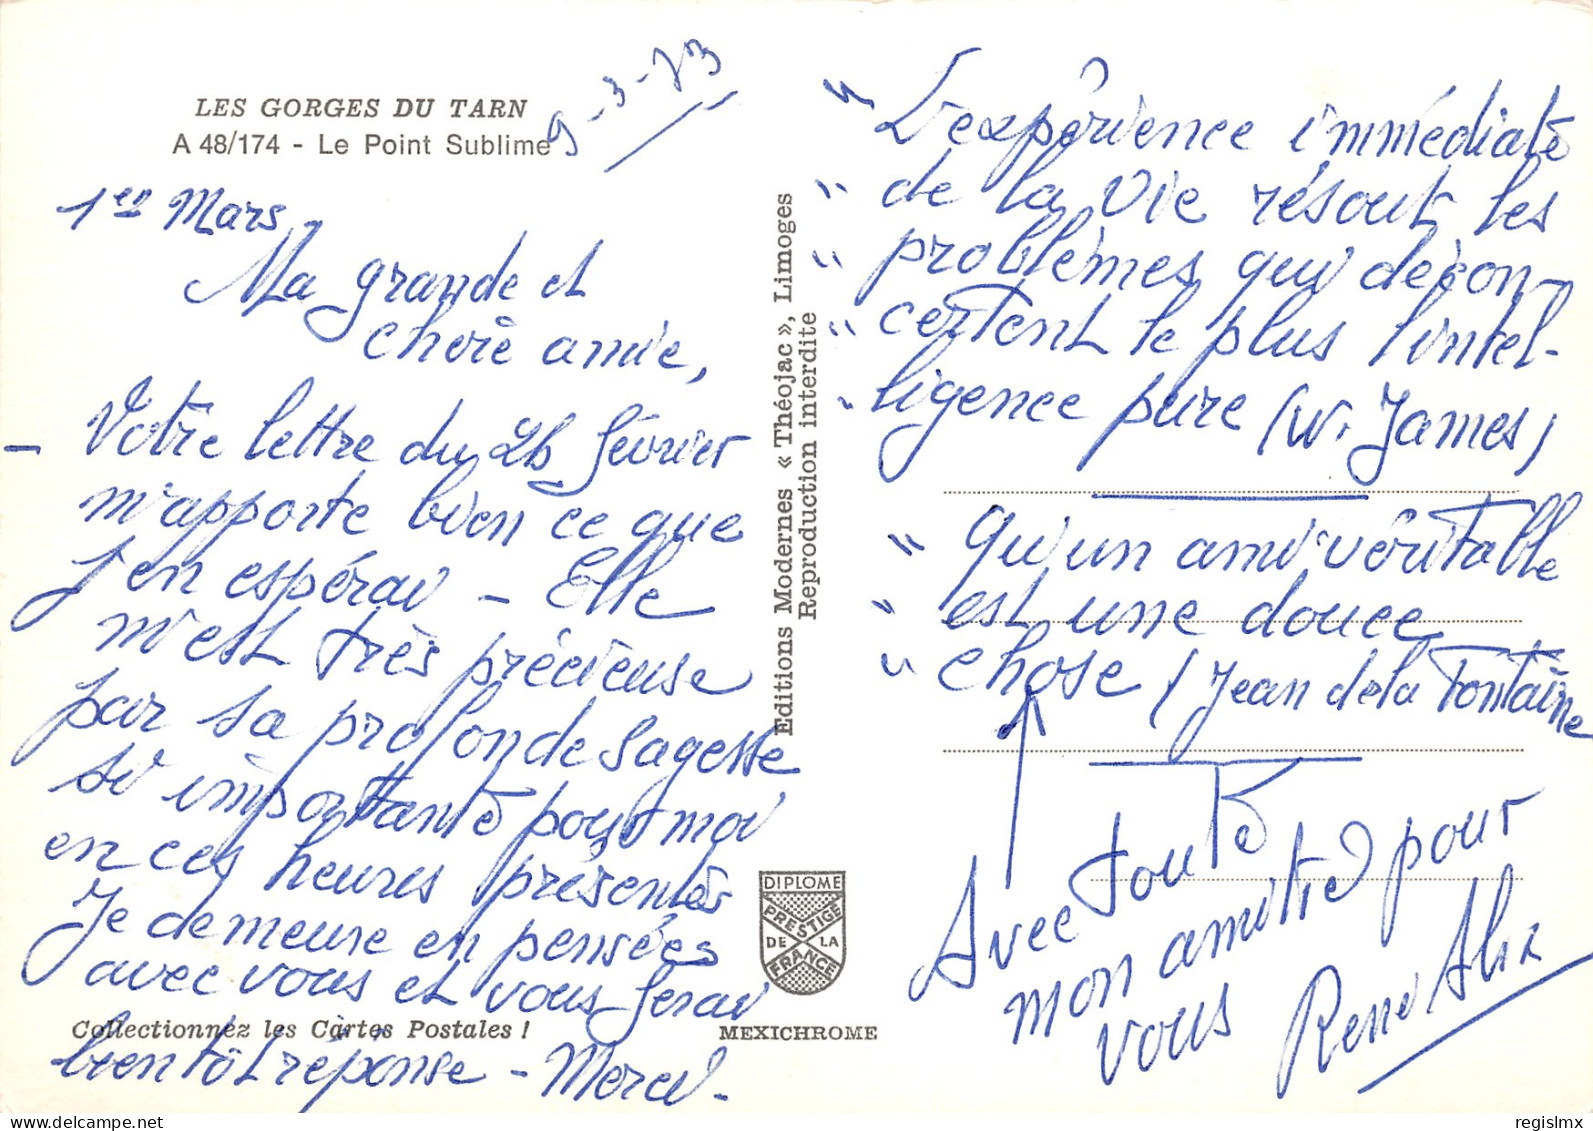 LES GORGES DU TARN
A 48/174 - Le Point Sublime
9-3-73
1er Mars
Ma grande et
chère amie,
- Votre lettre du 26 février
m'apporte bien ce que
j'en espérai - Elle
m'est très précieuse
par sa profonde sagesse
si importante pour moi
en ces heures présentes
Je demeure en pensées
avec vous et vous ferai
Collectionnez les Cartes Postales !
bientôt réponse - Merci.
Editions Modernes « Théojac », Limoges
Reproduction interdite
DIPLOME
PRESTIGE
DE LA
FRANCE
MEXICHROME
" L'expérience immédiate
" de la vie résout les
" problèmes qui décon-
" certent le plus l'intel-
" ligence pure (W. James)
" Qu'un ami véritable
" est une douce
" chose / Jean de la Fontaine
Avec toute
mon amitié pour
vous
René